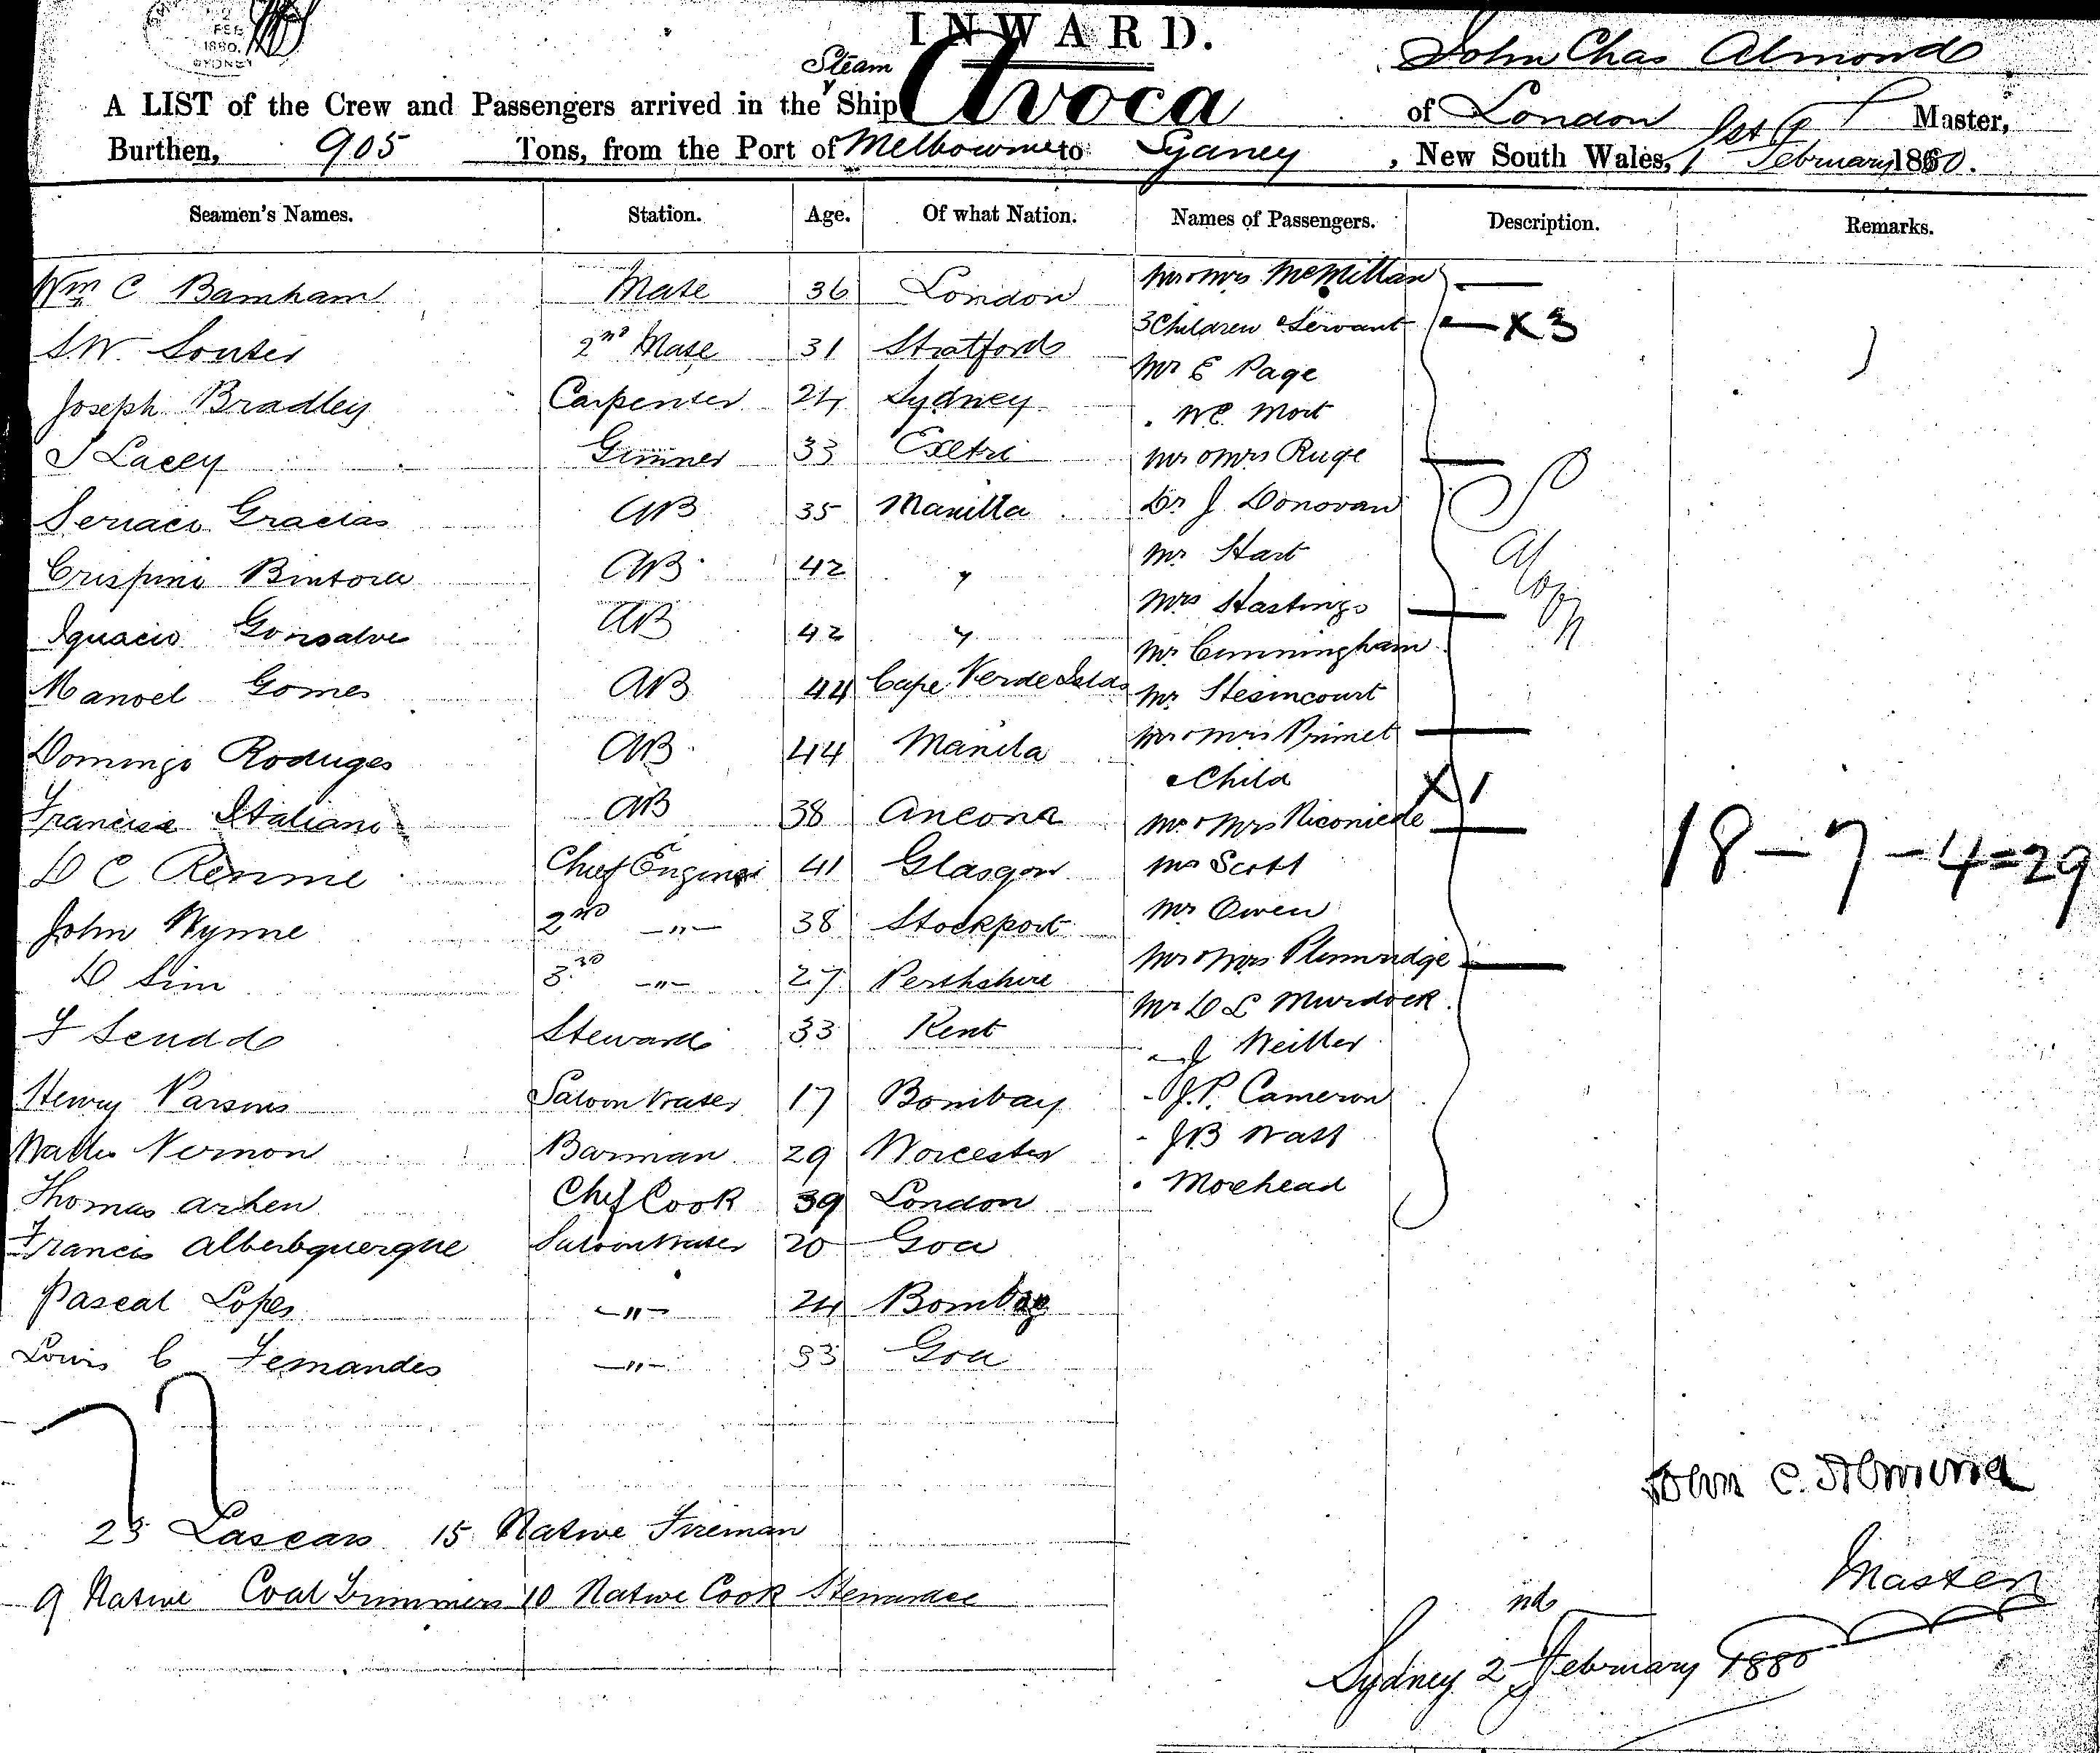 FEB
1880.
SYDNEY
INWARD.
John Chas Almond
A LIST of the Crew and Passengers arrived in the Steam Ship Avoca of London Master,
Burthen, 905 Tons, from the Port of Melbourne to Sydney, New South Wales, 1 February 1880.
Seamen's Names. Station. Age. Of what Nation. Names of Passengers. Description. Remarks.
Wm C Barnham Mate 36 London Mr & Mrs McMillan
S W Souter 2nd Mate 31 Stratford 3 Children & Servant X 3
Mr E Page
Joseph Bradley Carpenter 24 Sydney W C Mort
J Lacey Gunner 33 Mr & Mrs Ruge
Gracias AB 35 Manilla Dr J Donovan
Crispino Bintora AB 42 " Mr Hart
Mrs Hastings
Ignacio Gonsalve AB 42 " Mr Cunningham
Manoel Gomes AB 44 Cape Verde Islds Mr
Domingo Roduges AB 44 Manila Mr & Mrs Primet
& Child X 1
Italiano AB 38 Ancona Mr & Mrs
18 - 7 - 4 = 29
D C Rennie Chief Engineer 41 Glasgow Mr Scott
John Wynne 2nd -"- 38 Stockport Mr Owen
D Sim 3rd -"- 27 Perthshire Mr & Mrs
Mr D L Murdock
F Scudd Steward 33 Kent J
Henry Parsons Saloon Waiter 17 Bombay - J.P. Cameron
Walter Vernon Barman 29 Worcester - J B Watt
Thomas Arhen Chf Cook 39 London Morehead
Francis Alberbquerque Saloon Waiter 20 Goa
Pascal Lopes -"- 24 Bombay
Louis C Fernandes -"- 33 Goa
77
John C. Almond
23 Lascars 15 Native Fireman
Master
9 Native Coal Trimmers 10 Native Cook Stewards &c
Sydney 2nd February 1880